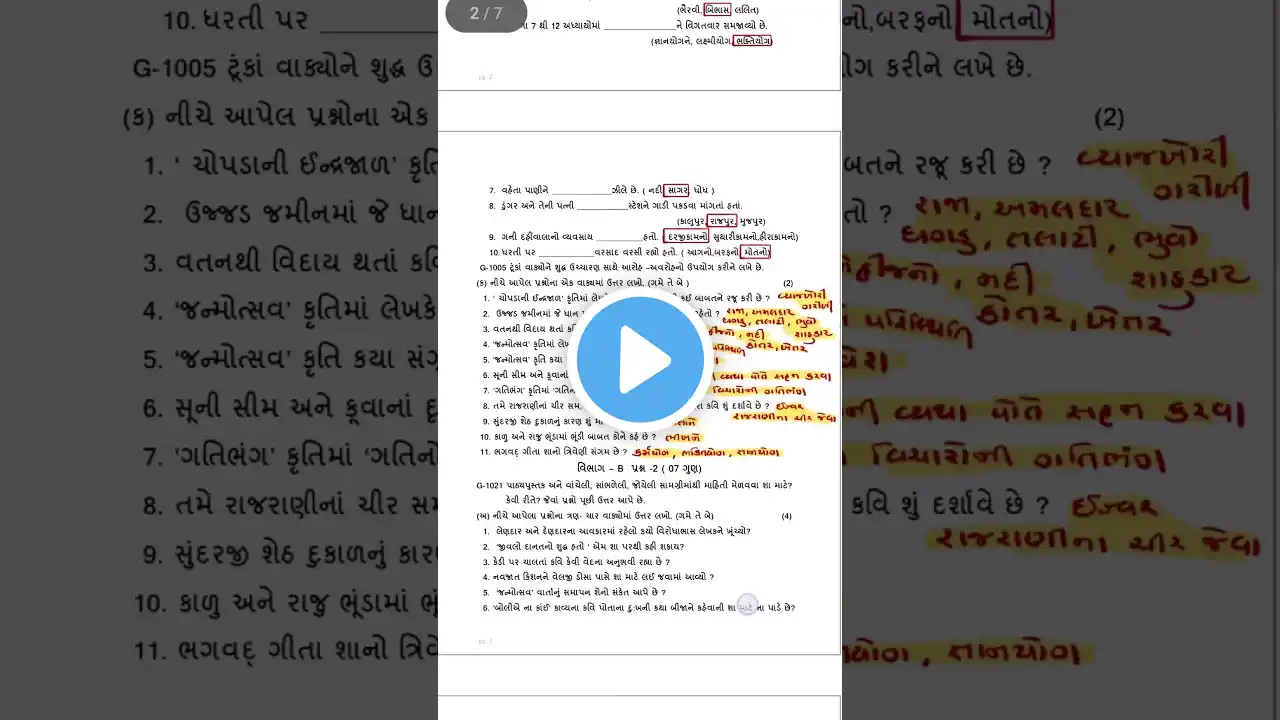 2 / 7
(ભૈરવી, બિભાસ, લલિત)
ના 7 થી 12 અધ્યાયોમાં ______________ને વિગતવાર સમજાવ્યો છે.
(જ્ઞાનયોગને, લક્ષ્મીયોગ, ભક્તિયોગ)
7. વહેતા પાણીને ____________ઝીલે છે. ( નદી, સાગર, ધોધ )
8. ડુંગર અને તેની પત્ની __________સ્ટેશને ગાડી પકડવા માંગતાં હતાં.
(કાલુપુર, રાજપુર, મુજપુર)
9. ગની દહીંવાલાનો વ્યવસાય _________હતો. ( દરજીકામનો, સુથારીકામનો,હીરાકામનો)
10. ધરતી પર ___________વરસાદ વરસી રહ્યો હતો. ( આગનો,બરફનો, મોતનો)
G-1005 ટૂંકાં વાક્યોને શુદ્ધ ઉચ્ચારણ સાથે આરોહ –અવરોહનો ઉપયોગ કરીને લખે છે.
(ક) નીચે આપેલ પ્રશ્નોના એક વાક્યમાં ઉત્તર લખો. (ગમે તે બે ) (2)
1. ' ચોપડાની ઈન્દ્રજાળ' કૃતિમાં લેખ કઈ બાબતને રજૂ કરી છે ? વ્યાજખોરી ગરીબી
2. ઉજ્જડ જમીનમાં જે ધાન તો ? રાજા, અમલદાર ધાડપાડુ, તલાટી, ભુવો શાહુકાર
3. વતનથી વિદાય થતાં કવિ નદી કોતર, ખેતર
4. 'જન્મોત્સવ' કૃતિમાં લેખકે પરિસ્થિતિ
5. 'જન્મોત્સવ' કૃતિ કયા સંગ્ર
6. સૂની સીમ અને કૂવાનાં દુ વ્યથા પોતે સહન કરવા
7. 'ગતિભંગ' કૃતિમાં 'ગતિન વિચારોની ગતિભંગ
8. તમે રાજરાણીનાં ચીર સમ કવિ શું દર્શાવે છે ? ઈશ્વર રાજરાણીના ચીર જેવા
9. સુંદરજી શેઠ દુકાળનું કારણ શું મા
10. કાળુ અને રાજુ ભૂંડામાં ભૂંડી બાબત કોને કહે છે ? ભીખને
11. ભગવદ્ ગીતા શાનો ત્રિવેણી સંગમ છે ? કર્મયોગ, ભક્તિયોગ, જ્ઞાનયોગ
વિભાગ – B પ્રશ્ન -2 ( 07 ગુણ)
G-1021 પાઠ્યપુસ્તક અને વાંચેલી, સાંભળેલી, જોયેલી સામગ્રીમાંથી માહિતી મેળવવા શા માટે?
કેવી રીતે? જેવાં પ્રશ્નો પૂછી ઉત્તર આપે છે.
(અ) નીચે આપેલા પ્રશ્નોના ત્રણ- ચાર વાક્યોમાં ઉત્તર લખો. (ગમે તે બે) (4)
1. લેણદાર અને દેણદારના આવકારમાં રહેલો કયો વિરોધાભાસ લેખકને ખૂંચ્યો?
2. 'જીવલો દાનતનો શુદ્ધ હતો ' એમ શા પરથી કહી શકાય?
3. કેડી પર ચાલતાં કવિ કેવી વેદના અનુભવી રહ્યા છે ?
4. નવજાત કિશનને વેલજી ડોસા પાસે શા માટે લઈ જવામાં આવ્યો ?
5. 'જન્મોત્સવ' વાર્તાનું સમાપન શેનો સંકેત આપે છે ?
6. 'બોલીએ ના કાંઈ' કાવ્યના કવિ પોતાના દુ:ખની કથા બીજાને કહેવાની શા માટે ના પાડે છે?